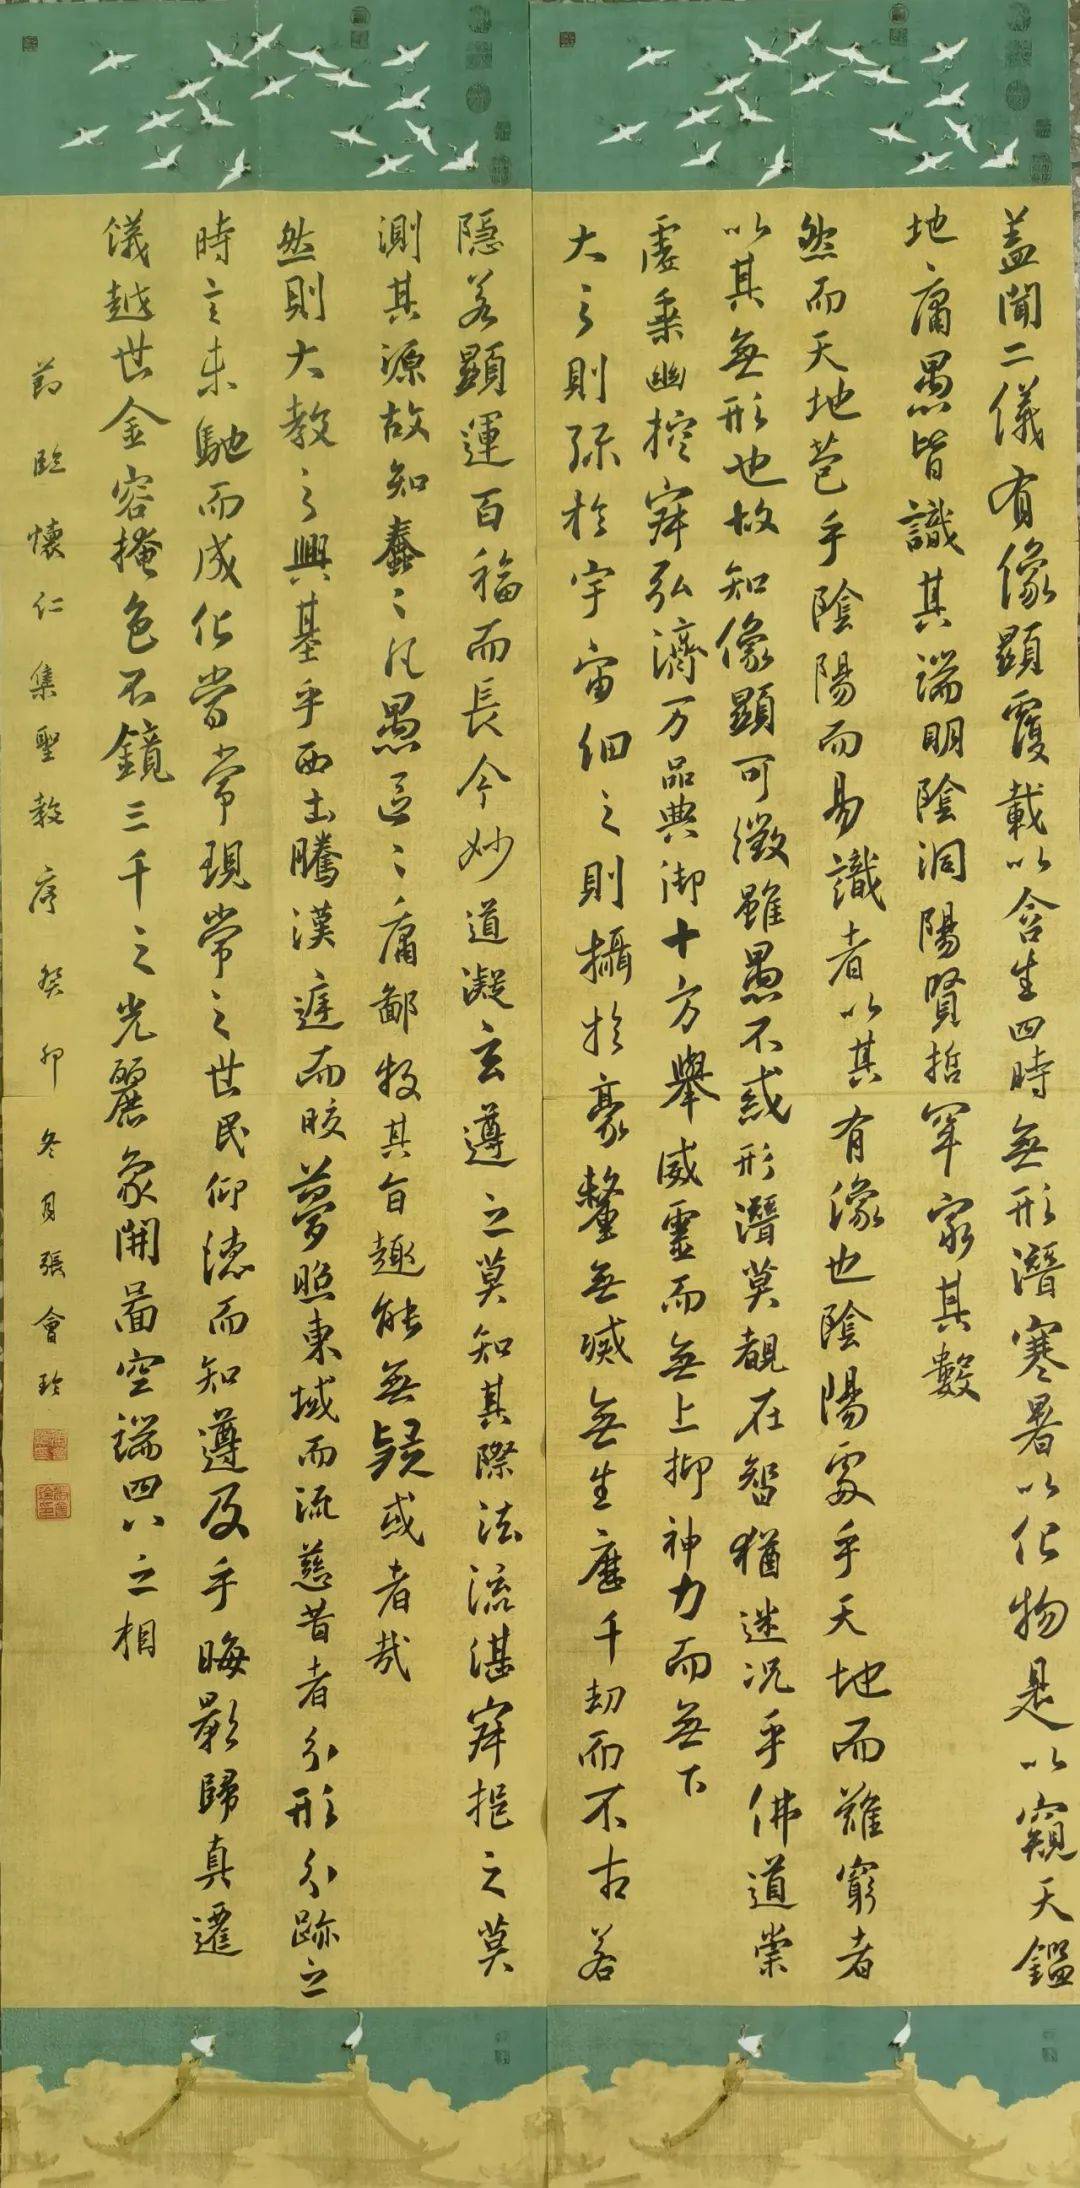 蓋聞二儀有像顯覆載以含生四時無形潛寒暑以化物是以窺天鑑
地庸愚皆識其端明陰洞陽賢哲罕窮其數
然而天地苞乎陰陽而易識者以其有像也陰陽處乎天地而難窮者
以其無形也故知像顯可徵雖愚不惑形潛莫覩在智猶迷況乎佛道崇
虛乘幽控寂弘濟万品典御十方舉威靈而無上抑神力而無下
大之則彌於宇宙細之則攝於豪釐無滅無生歷千劫而不古若
隱若顯運百福而長今妙道凝玄遵之莫知其際法流湛寂挹之莫
測其源故知蠢〻凡愚區〻庸鄙投其旨趣能無疑或者哉
然則大教之興基乎西土騰漢庭而皎夢照東域而流慈昔者分形分跡之
時言未馳而成化當常現常之世民仰德而知遵及乎晦影歸真遷
儀越世金容掩色不鏡三千之光麗象開圖空端四八之相
節臨懷仁集聖教序癸卯冬月張會玲